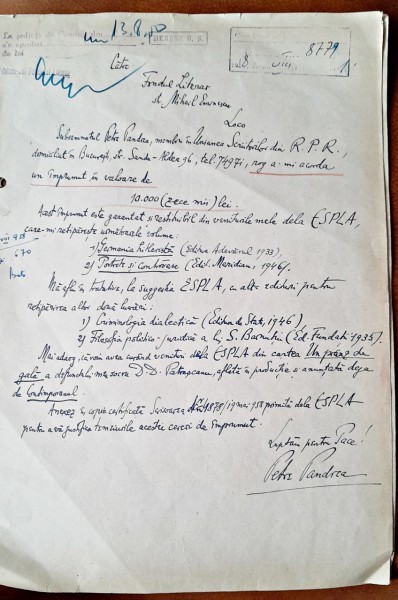 13.8.
8779
Către
Fondul Literar
st. Mihail Eminescu
Loco
Subsemnatul Petre Pandrea, membru în Uniunea Scriitorilor din R.P.R.,
domiciliat în București, str. Sandu-Aldea 96, tel. 74971, rog a-mi acorda
un împrumut în valoare de
10.000 (zece mii) lei.
Acest împrumut este garantat și restituibil din veniturile mele dela ESPLA,
care-mi retipărește următoarele volume:
1) Germania hitleristă (Editura Adevărul 1933).
2) Portrete și controverse (Edit. Meridian, 1946).
Mă aflu în tratative, la suggestia ESPLA, cu alte edituri pentru
retipărirea altor două lucrări:
1) Criminologia dialectică (Editura de Stat, 1946).
2) Filosofia politico-juridică a lui S. Barnutiu (Ed. Fundații 1935).
Mai adaog, că voi avea curând venituri dela ESPLA din cartea Un prânz de
gală a defunctului meu socru D.D. Pătrășcanu, aflată în producție și anunțată deja
de Contimporanul.
Anexez în copie certificată Scrisoarea 1878/19 mai 958 primită dela ESPLA
pentru a vă justifica temeiurile acestei cereri de împrumut.
Luptăm pentru Pace!
Petre Pandrea
670